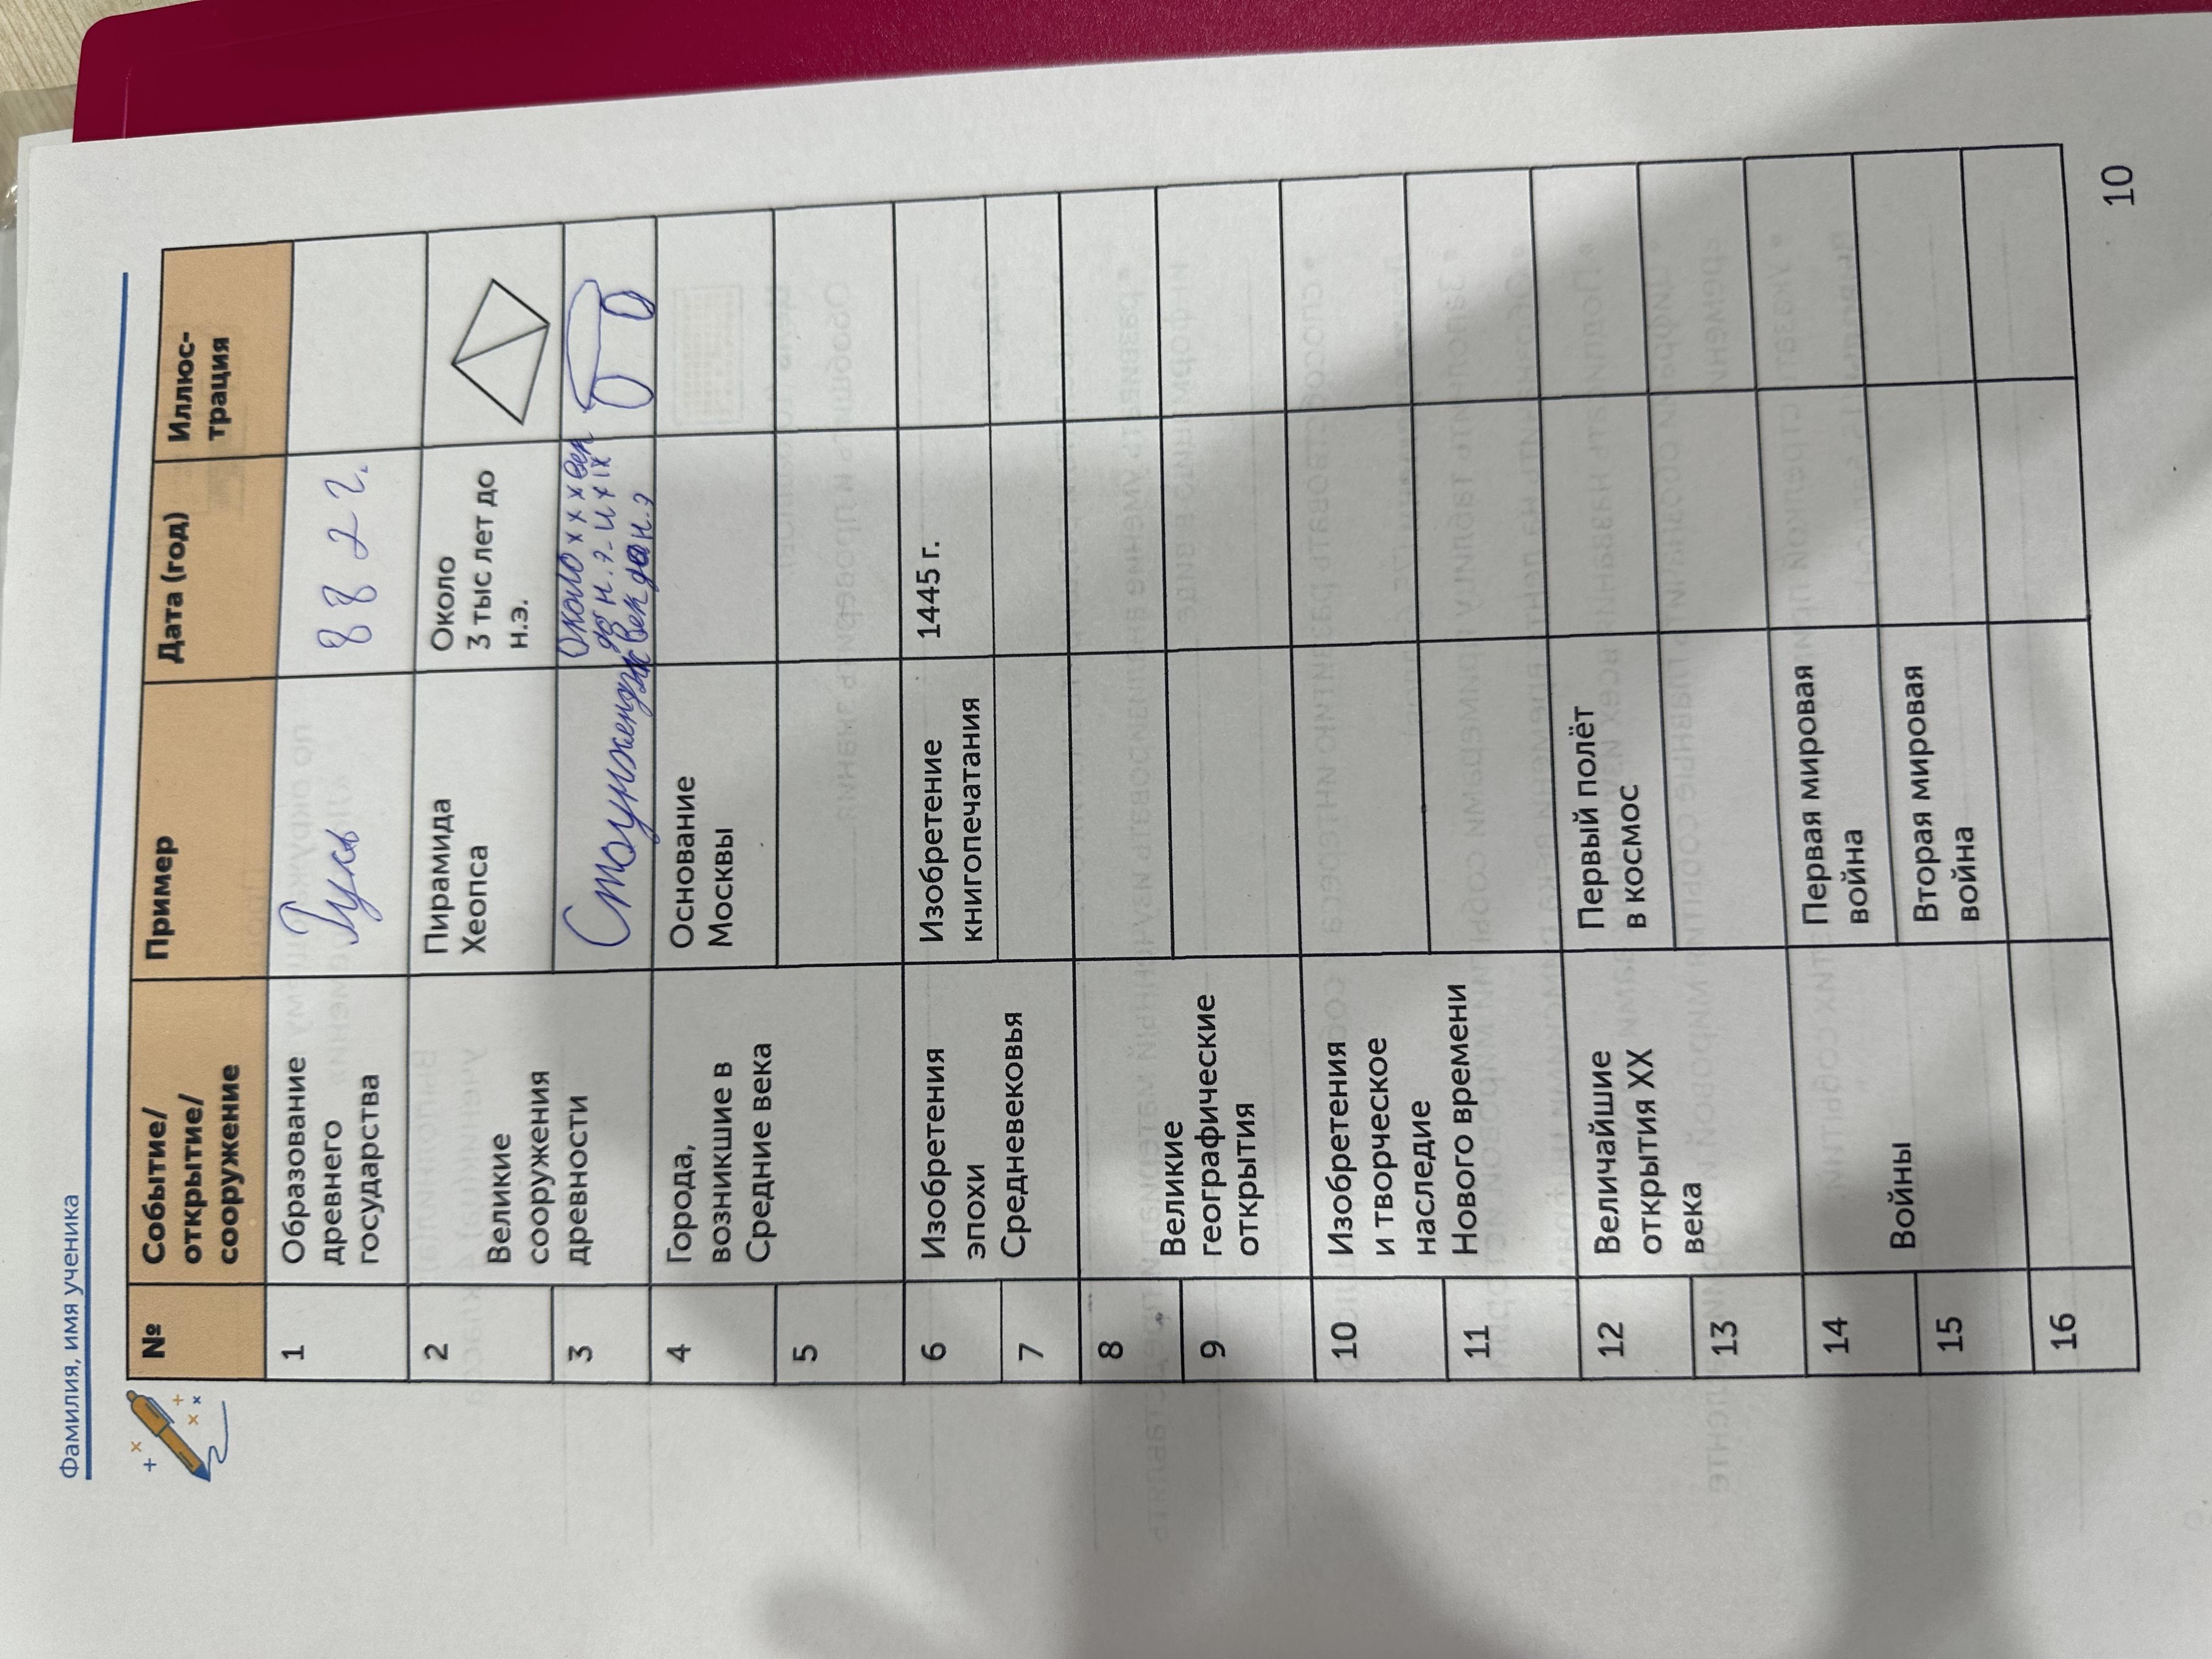 Фамилия, имя ученика
№ Событие/ открытие/ сооружение Пример Дата (год) Иллюс-трация
1 Образование древнего государства Русь 882 г.
2 Великие сооружения древности Пирамида Хеопса Около 3 тыс лет до н.э.
3 Стоунхендж Около XXX век до н.э. и XIX век до н.э
4 Города, возникшие в Средние века Основание Москвы
5
6 Изобретения эпохи Средневековья Изобретение книгопечатания 1445 г.
7
8 Великие географические открытия
9
10 Изобретения и творческое наследие Нового времени
11
12 Величайшие открытия XX века Первый полёт в космос
13
14 Войны Первая мировая война
15 Вторая мировая война
16
10